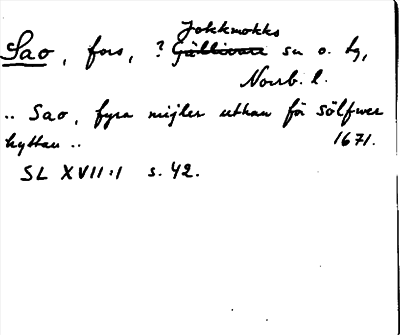 Jokkmokks
Sao, fors, ? Gällivare sn o. hg,
Norrb. l.
.. Sao, fyra mijler uthan för Sölfwer
hyttan .. 1671.
SL XVII:1 s. 42.